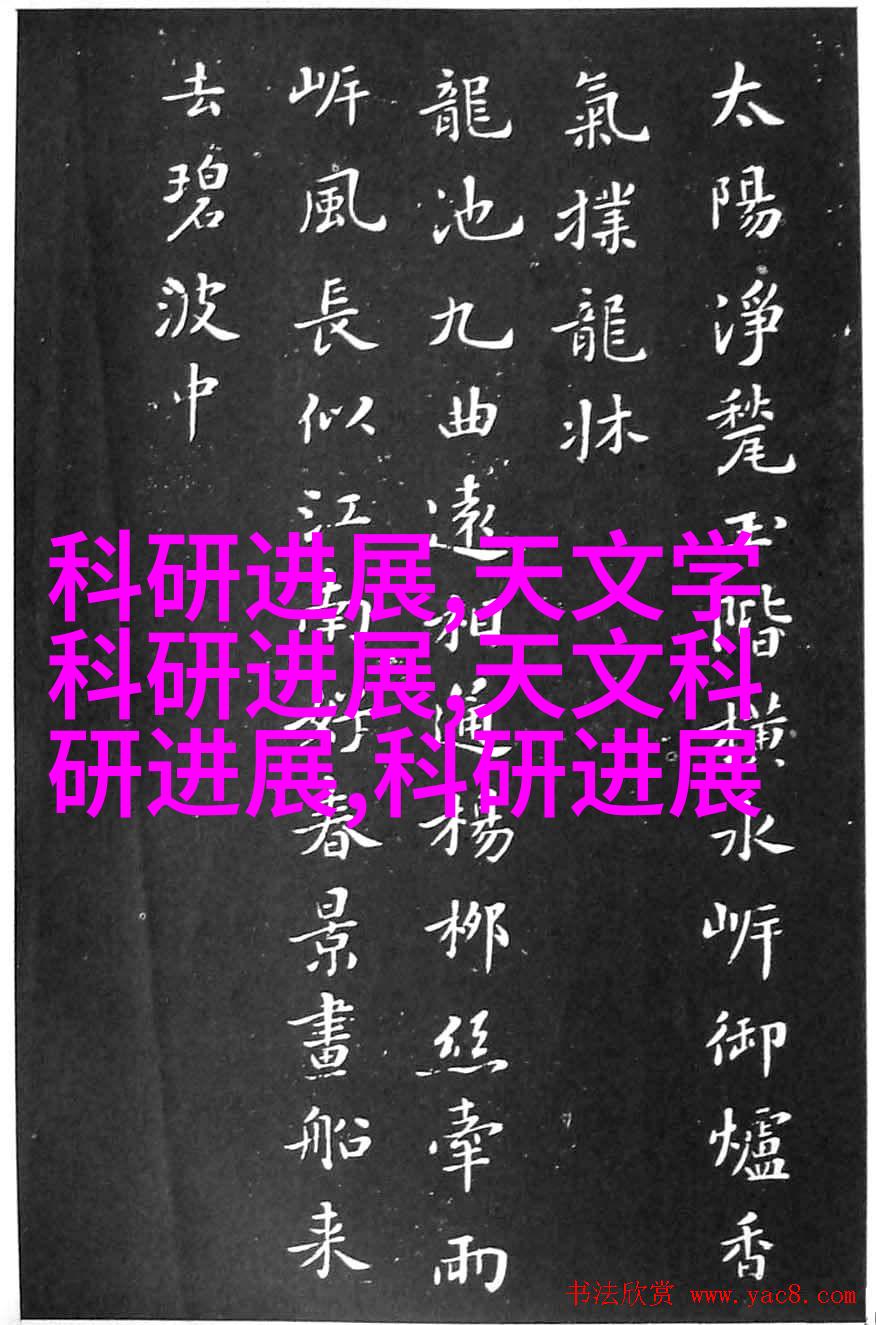 太陽淨甃玉階橫水岸御爐香
氣撲龍牀
龍池九曲遠相通楊柳絲牽兩
岸風長似江南好春景畫船来
去碧波中
科研进展,天文学
科研进展,天文科
研进展,科研进展
书法欣赏 www.yac8.com